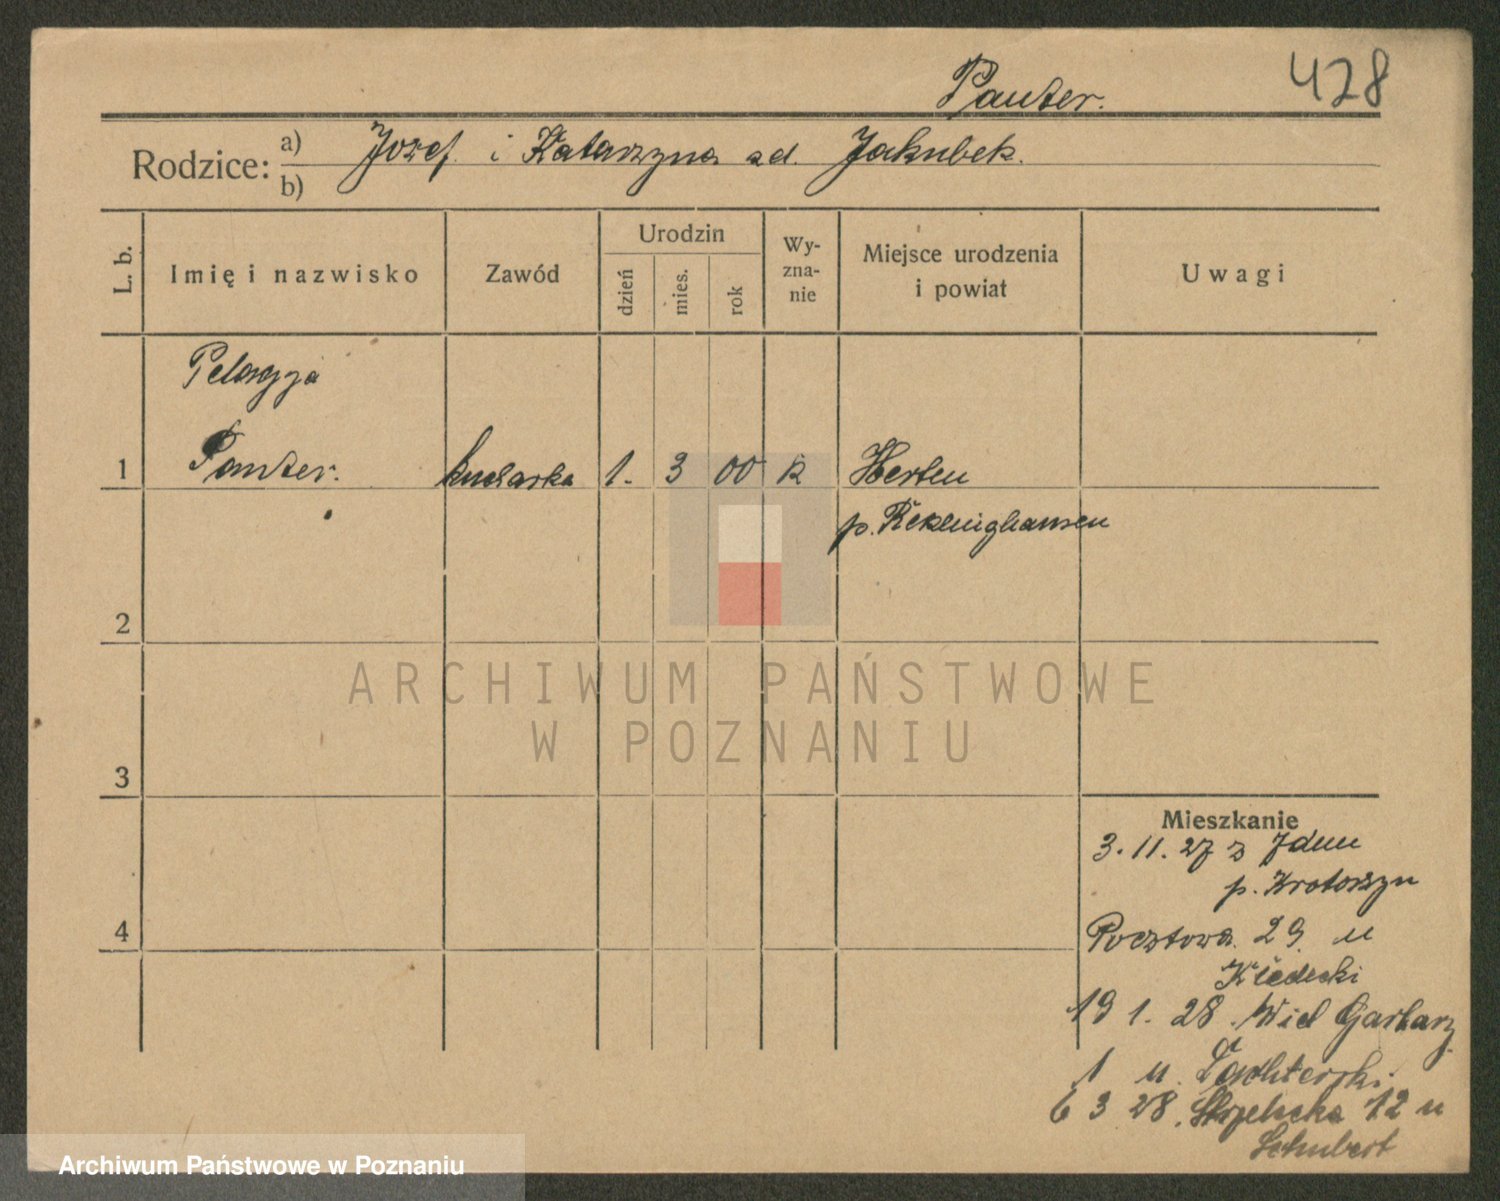 428
Panter.
Rodzice: a) Jozef i Katarzyna zd. Jakubek.
b)
L. b.
Imię i nazwisko
Zawód
Urodzin
dzień
mies.
rok
Wy-
zna-
nie
Miejsce urodzenia
i powiat
Uwagi
Pelagja
1 Panter. kucharka 1. 3 00 k Herten
p. Reklinghausen
2
3
4
Mieszkanie
3. 11. 27 z
p. Krotoszyn
Pocztowa 29. u
19 1. 28. Wiel Garbary
1 u
6 3 28. Strzelecka 12 u
Schubert
ARCHIWUM PAŃSTWOWE
W POZNANIU
Archiwum Państwowe w Poznaniu